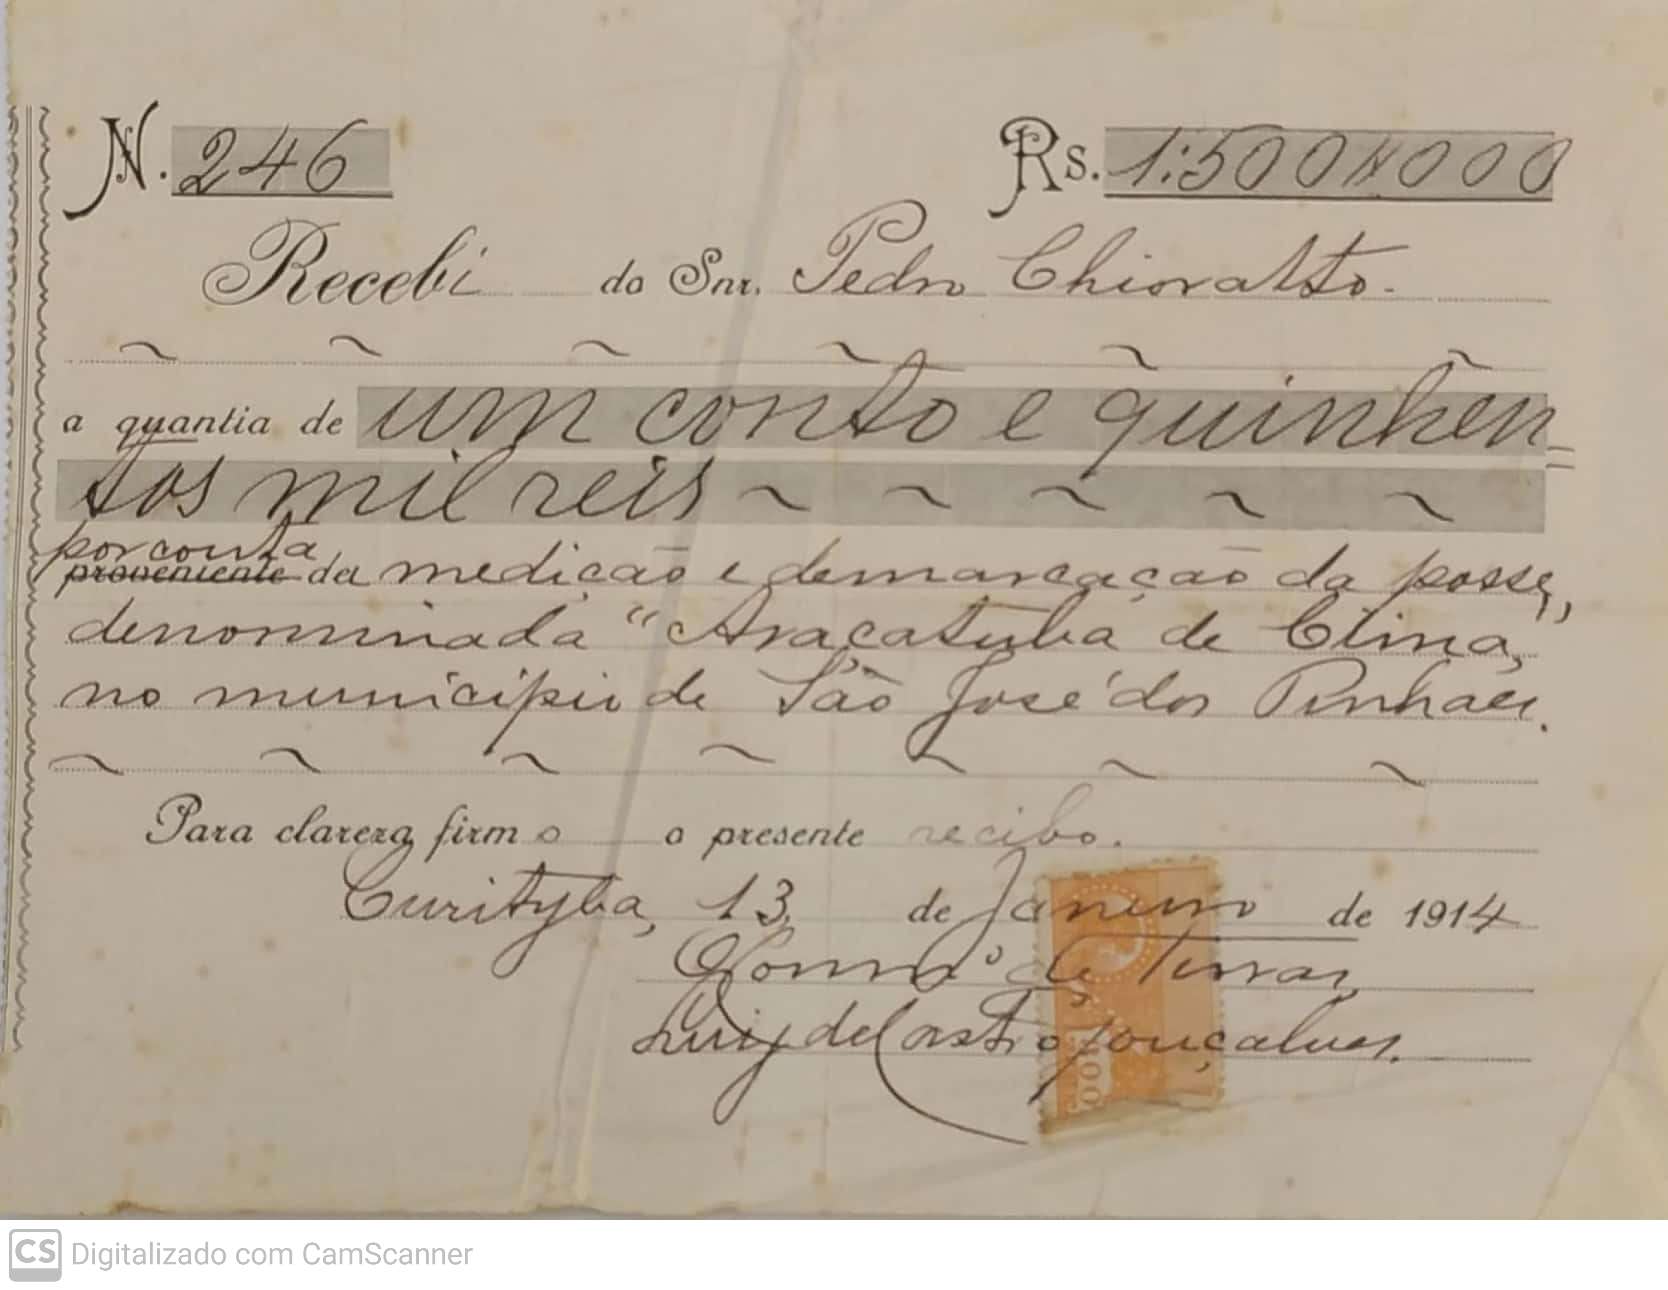 N. 246 Rs. 1:500$000
Recebi do Snr. Pedro Chioratto.
a quantia de um conto e quinhen=
tos mil reis
por conta
proveniente da medição e demarcação da posse,
denominada "Araçatuba de Cima,"
no municipio de São José dos Pinhaes.
Para clareza firmo o presente recibo.
Curityba, 13 de Janeiro de 1914
de Terras,
Luiz de Castro Gonçalves.
CS Digitalizado com CamScanner